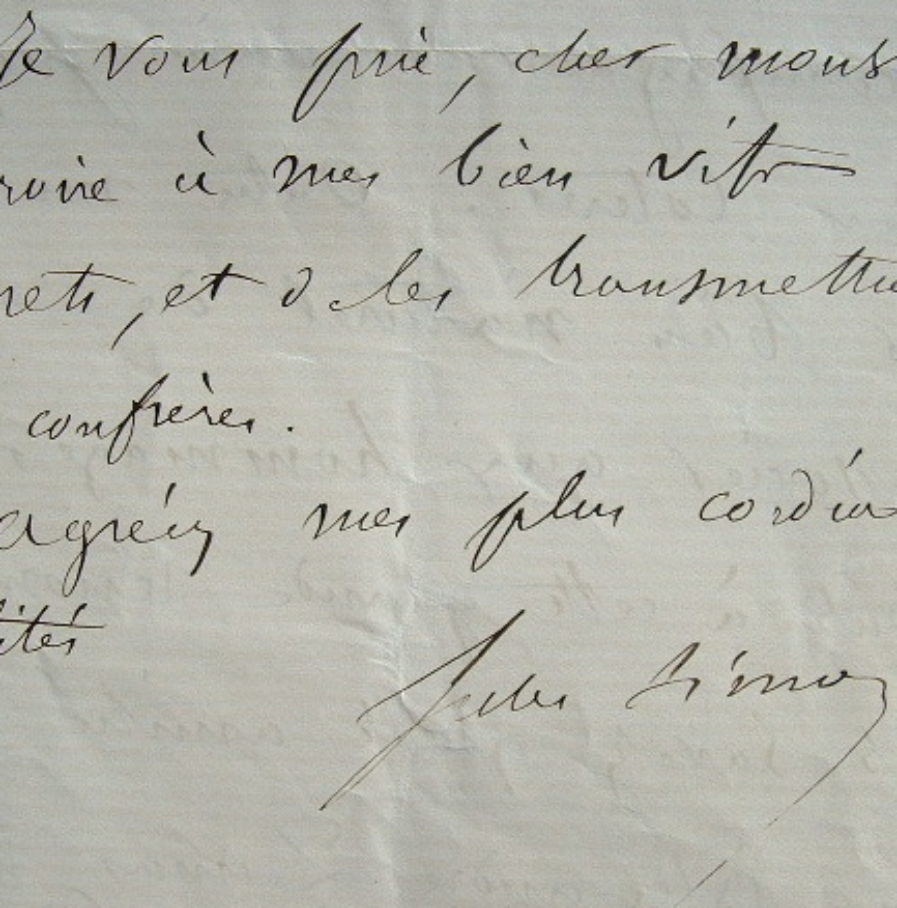 Je vous prie, cher mons
roire à mes bien vifs
rets, et de les transmettre
confrères.
agréez mes plus cordia
ités
Jules Simon